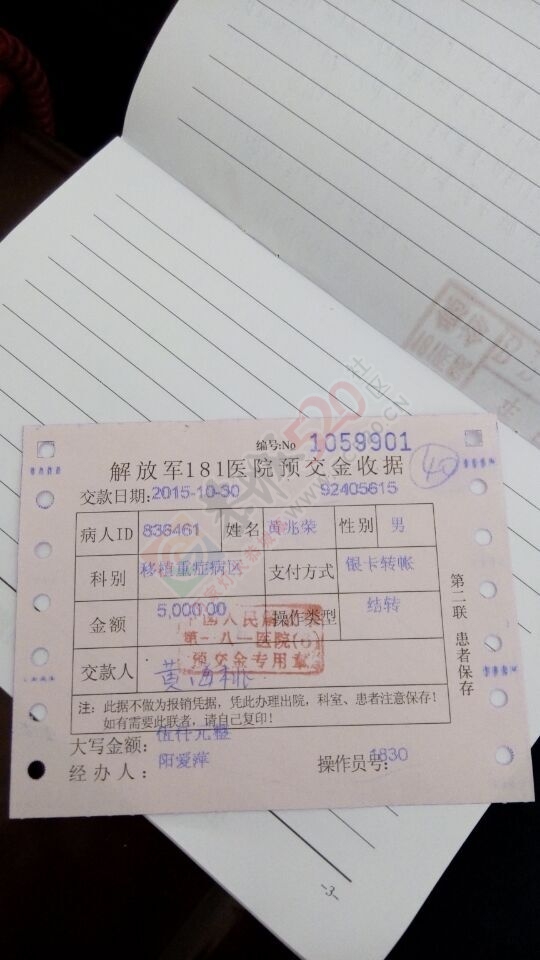 编号:No 1059901
解放军181医院预交金收据 40
交款日期:2015-10-30 92405615
病人ID 836461 姓名 黄兆荣 性别 男
科别 移植重症病区 支付方式 银卡转帐
金额 5,000.00 操作类型 结转
中国人民解放
第一八一医院(6)
预交金专用章
交款人 黄海桃
注：此据不做为报销凭据，凭此办理出院，科室、患者注意保存！
如有需要此联者，请自己复印！
大写金额： 伍仟元整
经办人： 阳爱萍 操作员号: 1830
第二联 患者保存
520
-3-